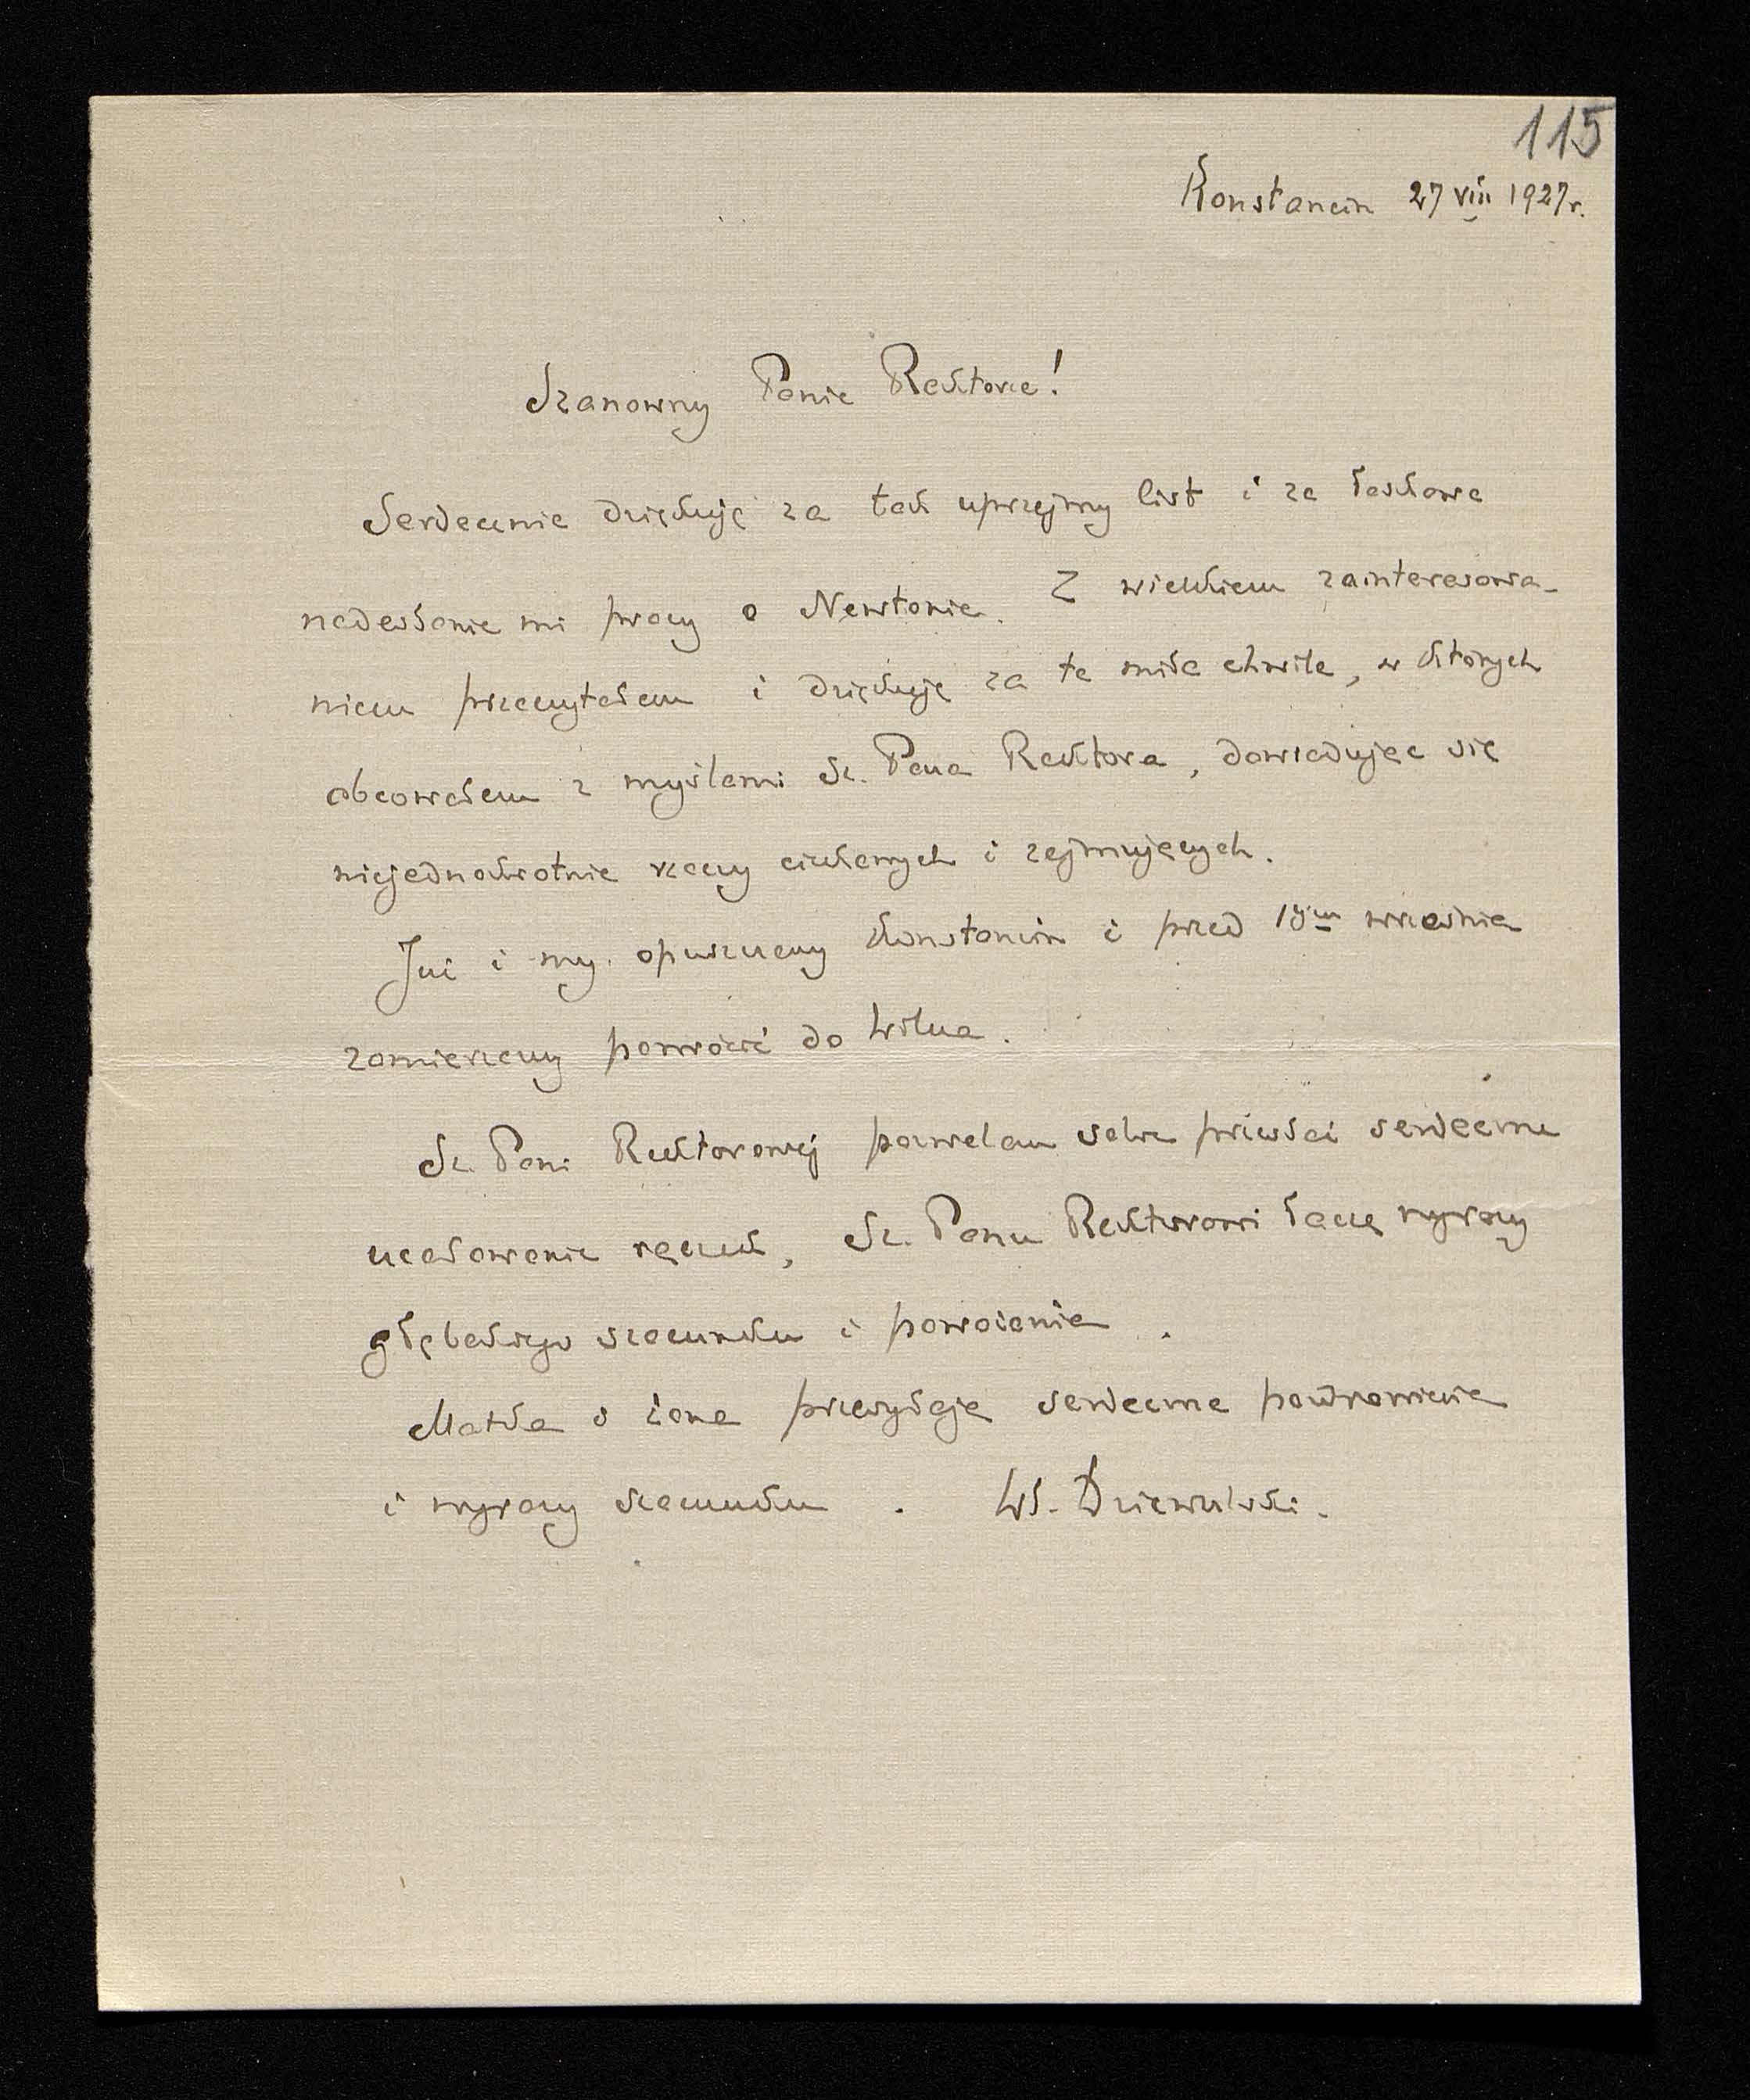 115
Konstancin 27 VIII 1927 r.
Szanowny Panie Rektorze!
Serdecznie dziękuję za tak uprzejmy list i za łaskawe
nadesłanie mi pracy o Newtonie. Z wielkiem zainteresowa-
niem przeczytałem i dziękuję za te miłe chwile, w których
obcowałem z myślami Sz. Pana Rektora, dowiadując się
niejednokrotnie rzeczy ciekawych i zajmujących.
Już i my opuszczamy Konstancin i przed 15ym września
zamierzamy powrócić do Wilna.
Sz. Pani Rektorowej pozwalam sobie przesłać serdeczne
ucałowanie rączek, Sz. Panu Rektorowi łączę wyrazy
głębokiego szacunku i poważania.
Matka i żona przesyłają serdeczne pozdrowienia
i wyrazy szacunku. Wł. Dziewulski.